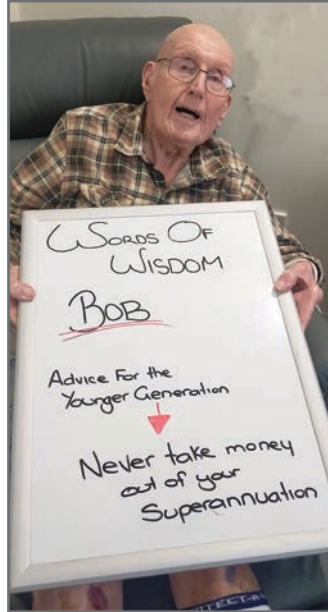 Words Of
Wisdom
Bob
Advice For the
Younger Generation
Never take money
out of your
Superannuation
TECT-A